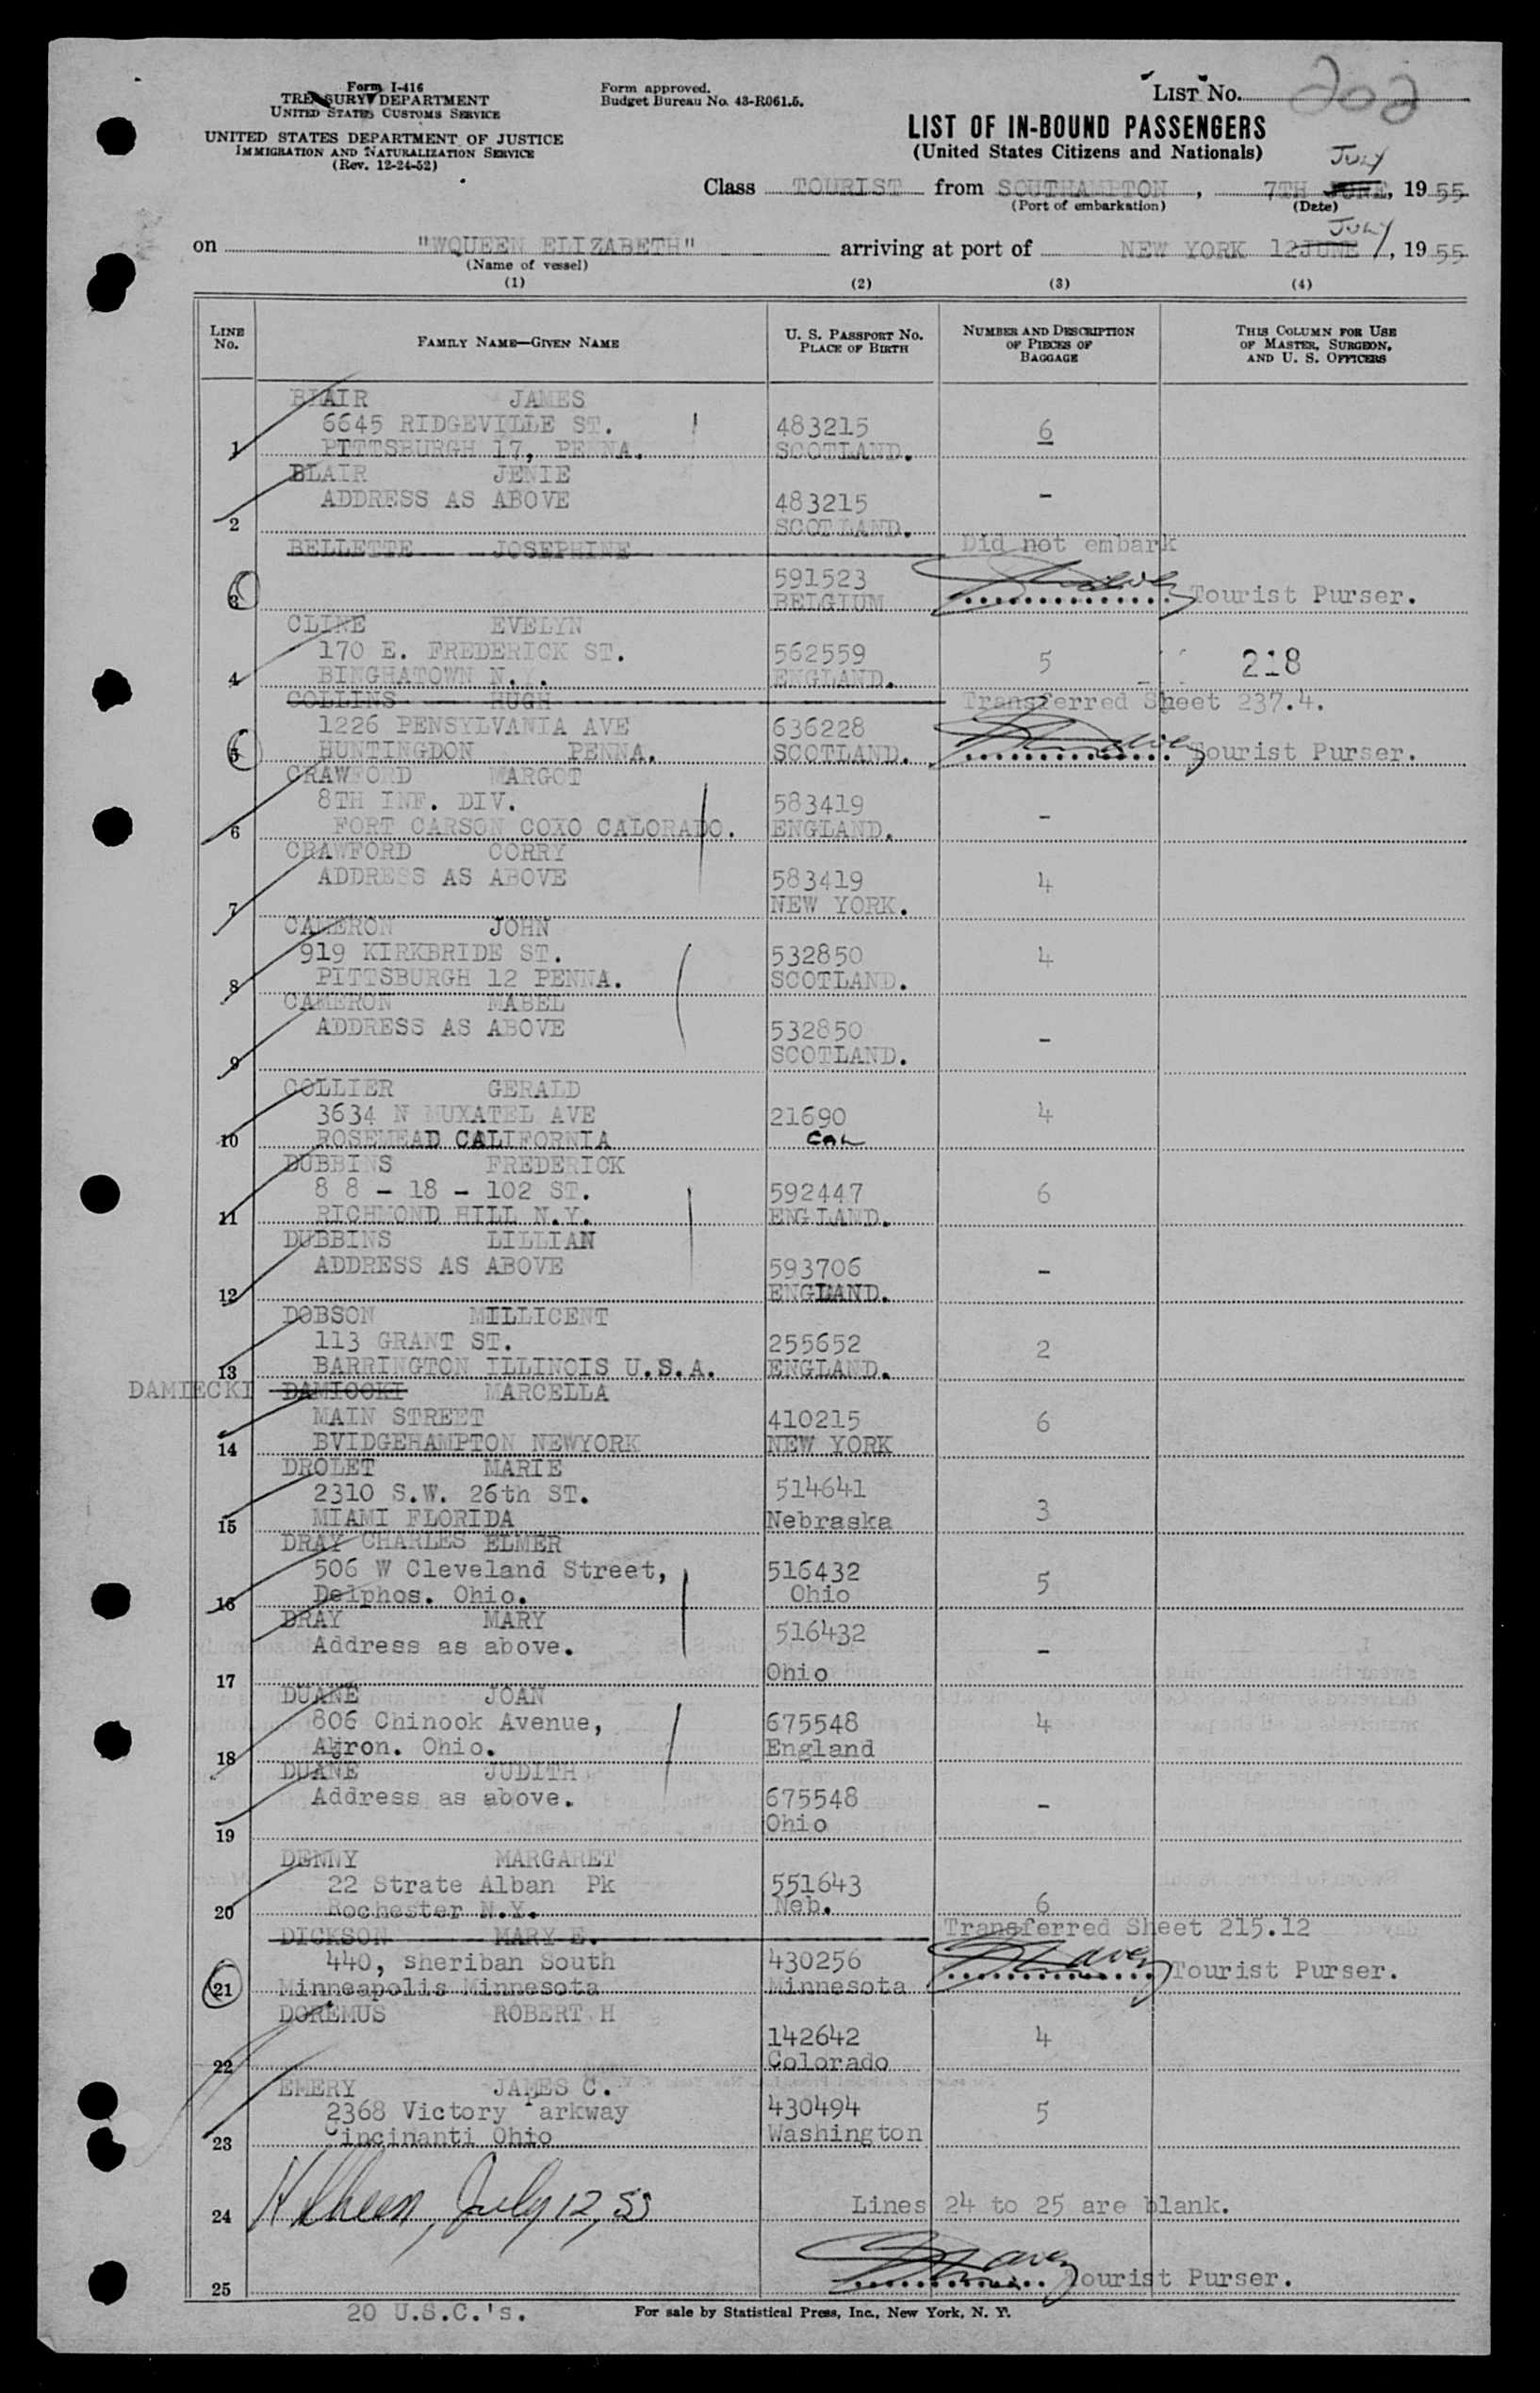 Form I-416
TREASURY DEPARTMENT
UNITED STATES CUSTOMS SERVICE
UNITED STATES DEPARTMENT OF JUSTICE
IMMIGRATION AND NATURALIZATION SERVICE
(Rev. 12-24-52)
Form approved.
Budget Bureau No. 43-R061.5.
LIST No. 202
LIST OF IN-BOUND PASSENGERS
(United States Citizens and Nationals)
JULY
Class TOURIST from SOUTHAMPTON, 7TH JUNE, 1955
(Port of embarkation) (Date)
JULY
on "WQUEEN ELIZABETH" arriving at port of NEW YORK 12JUNE, 1955
(Name of vessel)
(1) (2) (3) (4)
LINE No. FAMILY NAME—GIVEN NAME U. S. PASSPORT No. PLACE OF BIRTH NUMBER AND DESCRIPTION OF PIECES OF BAGGAGE THIS COLUMN FOR USE OF MASTER, SURGEON, AND U. S. OFFICERS
BLAIR JAMES
6645 RIDGEVILLE ST. 483215 6
1 PITTSBURGH 17, PENNA. SCOTLAND.
BLAIR JENIE
ADDRESS AS ABOVE 483215 -
2 SCOTLAND.
BELLETTE JOSEPHINE Did not embark
591523
3 BELGIUM Tourist Purser.
CLINE EVELYN
170 E. FREDERICK ST. 562559 5 218
4 BINGHATOWN N.Y. ENGLAND.
COLLINS HUGH Transferred Sheet 237.4.
1226 PENSYLVANIA AVE 636228
5 HUNTINGDON PENNA. SCOTLAND. Tourist Purser.
CRAWFORD MARGOT
8TH INF. DIV. 583419 -
6 FORT CARSON COXO CALORADO. ENGLAND.
CRAWFORD CORRY
ADDRESS AS ABOVE 583419 4
7 NEW YORK.
CAMERON JOHN
919 KIRKBRIDE ST. 532850 4
8 PITTSBURGH 12 PENNA. SCOTLAND.
CAMERON MABEL
ADDRESS AS ABOVE 532850 -
9 SCOTLAND.
COLLIER GERALD
3634 N MUXATEL AVE 21690 4
10 ROSEMEAD CALIFORNIA CAL
DUBBINS FREDERICK
8 8 - 18 - 102 ST. 592447 6
11 RICHMOND HILL N.Y. ENGLAND.
DUBBINS LILLIAN
ADDRESS AS ABOVE 593706 -
12 ENGLAND.
DOBSON MILLICENT
113 GRANT ST. 255652 2
13 BARRINGTON ILLINOIS U.S.A. ENGLAND.
DAMIECKI DAMIOCKI MARCELLA
MAIN STREET 410215 6
14 BVIDGEHAMPTON NEWYORK NEW YORK
DROLET MARIE
2310 S.W. 26th ST. 514641 3
15 MIAMI FLORIDA Nebraska
DRAY CHARLES ELMER
506 W Cleveland Street, 516432 5
16 Delphos. Ohio. Ohio
DRAY MARY
Address as above. 516432 -
17 Ohio
DUANE JOAN
806 Chinook Avenue, 675548 4
18 Akron. Ohio. England
DUANE JUDITH
Address as above. 675548 -
19 Ohio
DENNY MARGARET
22 Strate Alban Pk 551643
20 Rochester N.Y. Neb. 6
DICKSON MARY E. Transferred Sheet 215.12
440, sheriban South 430256
21 Minneapolis Minnesota Minnesota Tourist Purser.
DOREMUS ROBERT H
142642 4
22 Colorado
EMERY JAMES C.
2368 Victory Parkway 430494 5
23 Cincinanti Ohio Washington
24 July 12, 55 Lines 24 to 25 are blank.
25 Tourist Purser.
20 U.S.C.'s. For sale by Statistical Press, Inc., New York, N. Y.